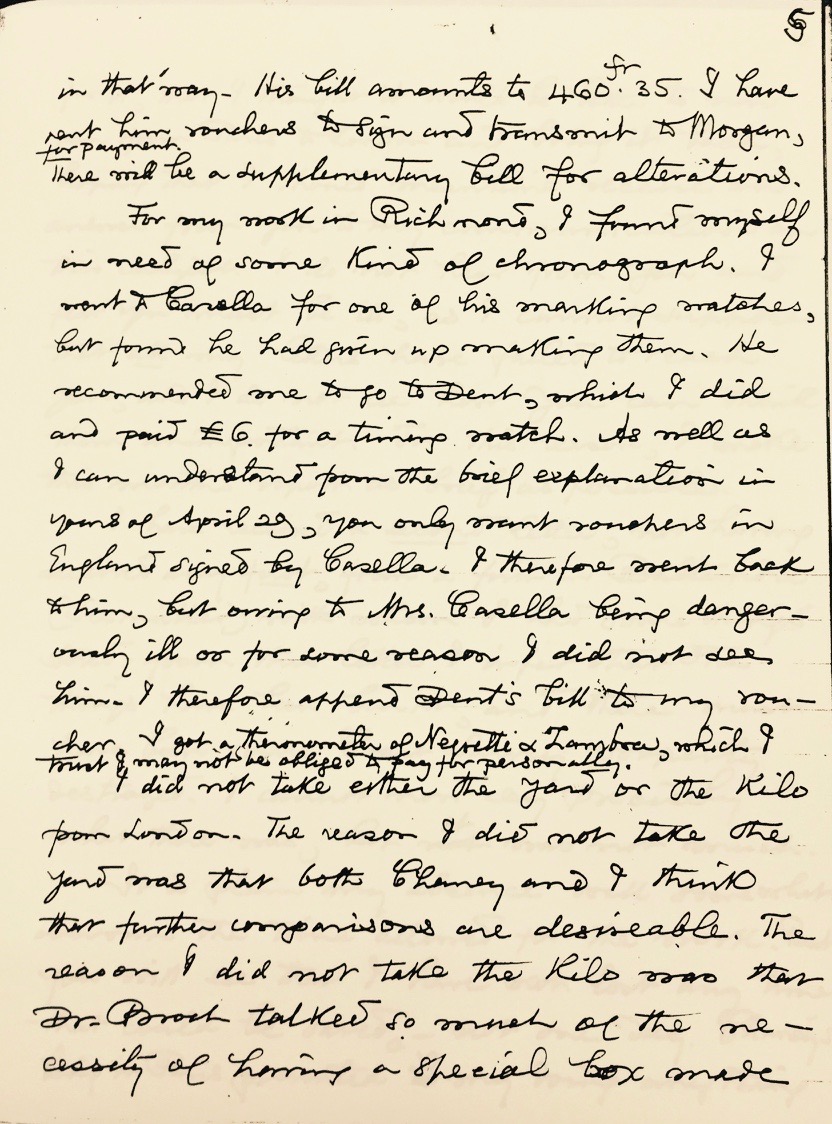 5
in that way - His bill amounts to 460 fr. 35. I have
sent him vouchers to sign and transmit to Morgan,
for payment.
There will be a supplementary bill for alterations.
For my work in Richmond, I found myself
in need of some kind of chronograph. I
went to Casella for one of his marking watches,
but found he had given up making them. He
recommended me to go to Dent, which I did
and paid £6. for a timing watch. As well as
I can understand from the brief explanation in
yours of April 29, you only want vouchers in
England signed by Casella. I therefore went back
to him, but owing to Mrs. Casella being danger-
ously ill or for some reason I did not see
him. I therefore append Dent's bill to my vou-
cher. I got a thermometer of Negretti & Zambra, which I
trust I may not be obliged to pay for personally.
I did not take either the Yard or the Kilo
from London. The reason I did not take the
Yard was that both Chaney and I think
that further comparisons are desireable. The
reason I did not take the Kilo was that
Dr. Broch talked so much of the ne-
cessity of having a special box made